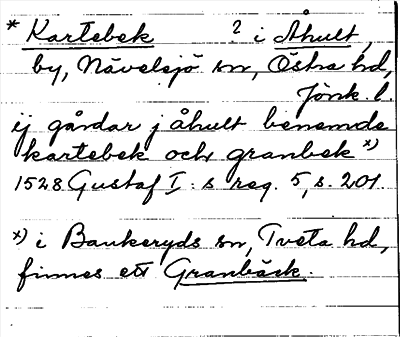 * Kartebek ? i Åhult,
by, Nävelsjö sn, Östra hd,
Jönk. l.
ij gårdar j åhult benemde
kartebek och granbek x)
1528 Gustaf I: s reg. 5, s. 201
x) i Bankeryds sn, Tveta hd,
finnes ett Granbäck.